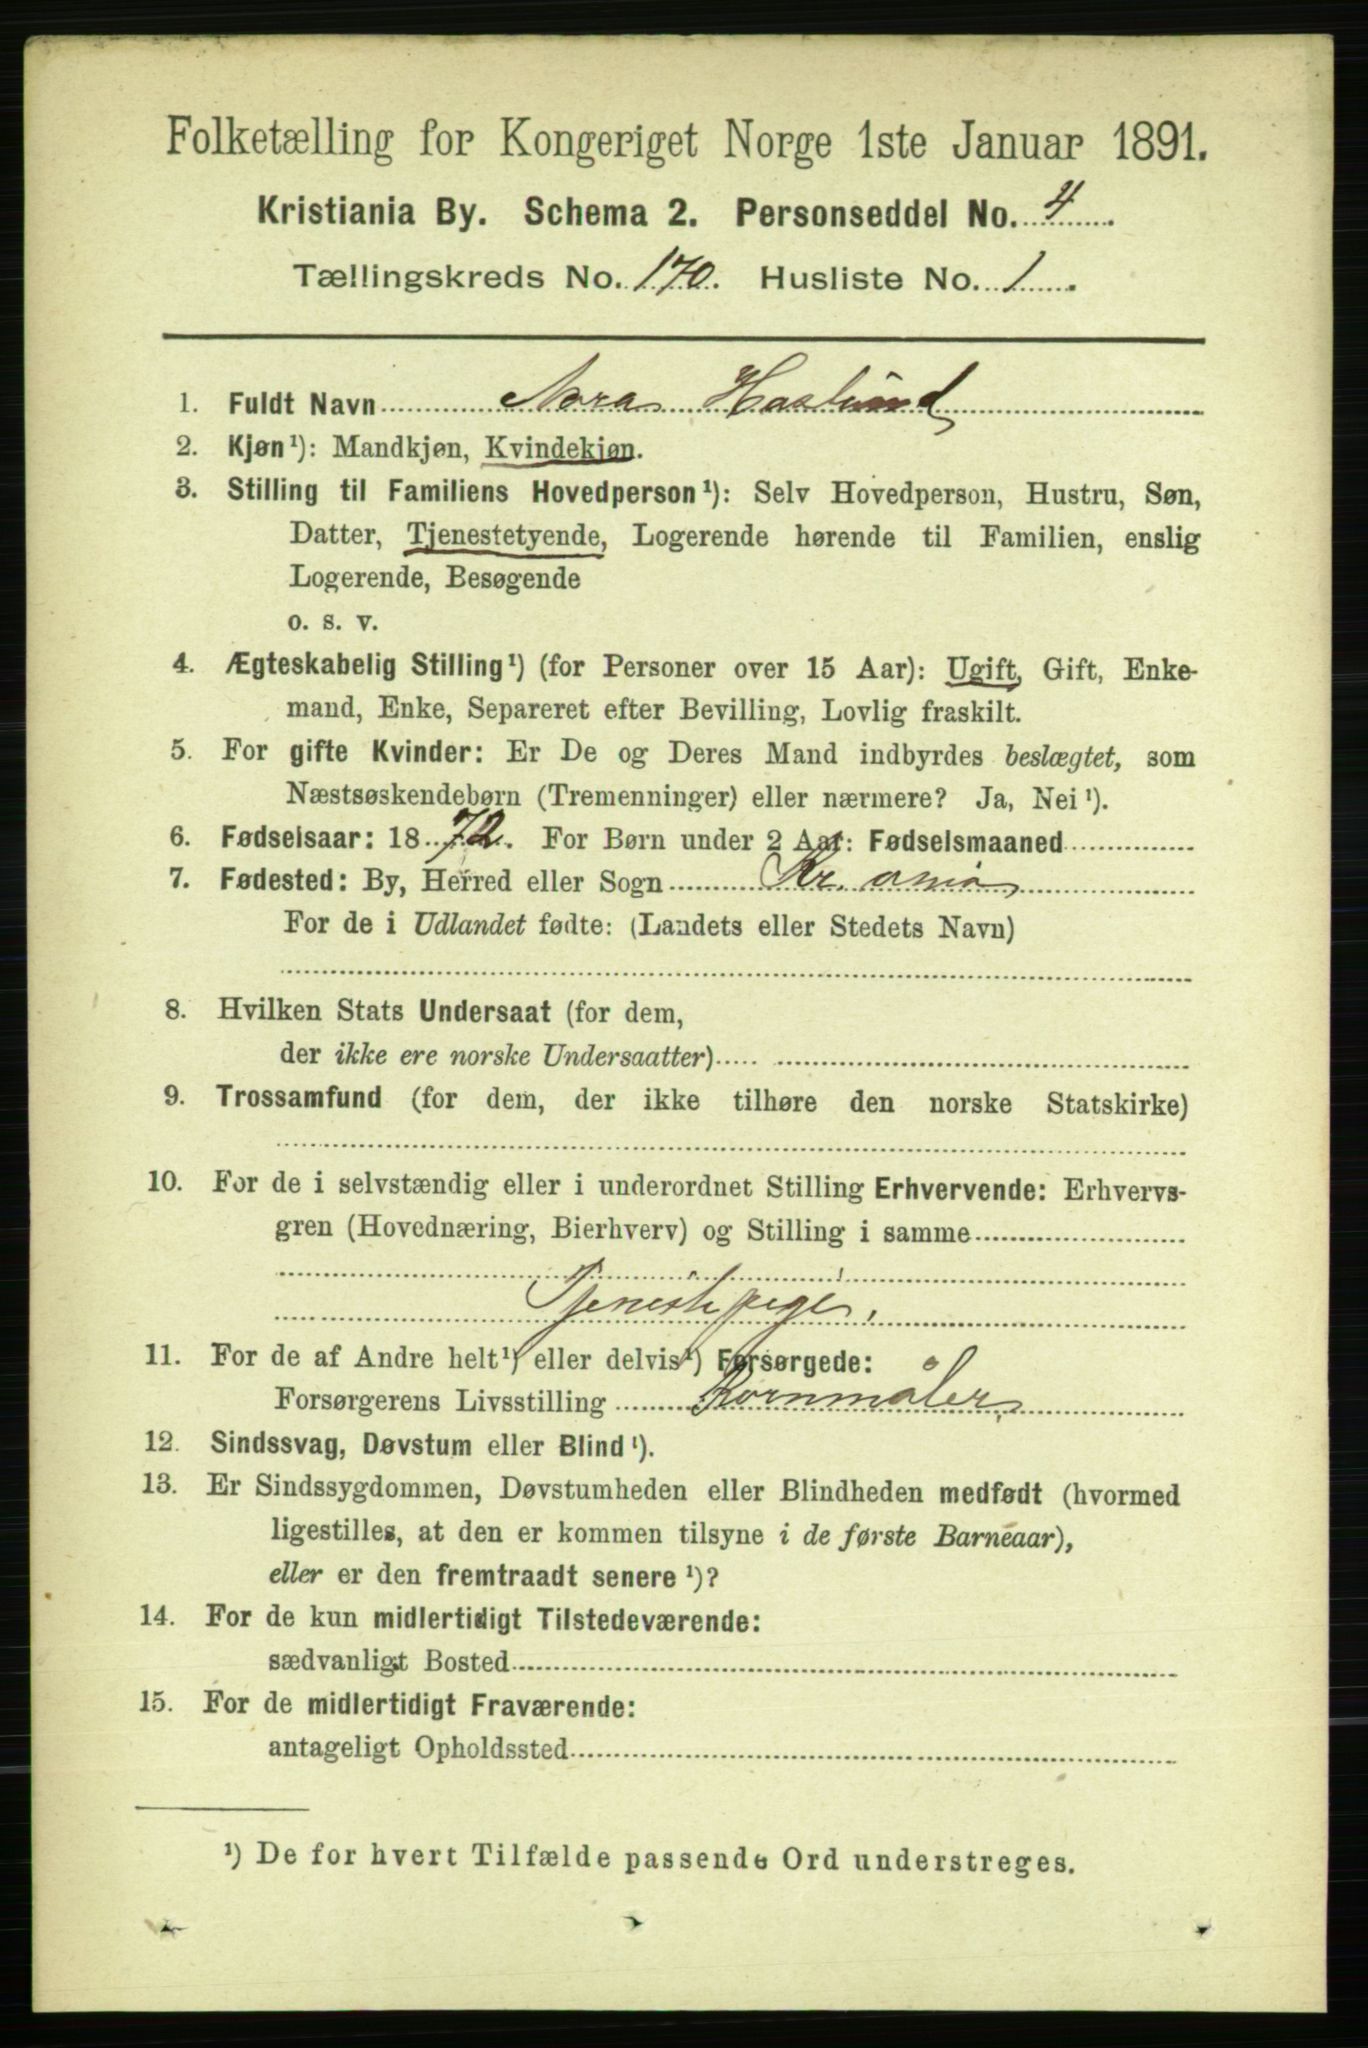 Folketælling for Kongeriget Norge 1ste Januar 1891.
Kristiania By. Schema 2. Personseddel No. 4
Tællingskreds No. 170. Husliste No. 1.
1. Fuldt Navn Nora Haslund
2. Kjøn¹): Mandkjøn, Kvindekjøn.
3. Stilling til Familiens Hovedperson¹): Selv Hovedperson, Hustru, Søn,
Datter, Tjenestetyende, Logerende hørende til Familien, enslig
Logerende, Besøgende
o. s. v.
4. Ægteskabelig Stilling¹) (for Personer over 15 Aar): Ugift, Gift, Enke-
mand, Enke, Separeret efter Bevilling, Lovlig fraskilt.
5. For gifte Kvinder: Er De og Deres Mand indbyrdes beslægtet, som
Næstsøskendebørn (Tremenninger) eller nærmere? Ja, Nei¹).
6. Fødselsaar: 1872. For Børn under 2 Aar: Fødselsmaaned
7. Fødested: By, Herred eller Sogn Kr. ania
For de i Udlandet fødte: (Landets eller Stedets Navn)
8. Hvilken Stats Undersaat (for dem,
der ikke ere norske Undersaatter)
9. Trossamfund (for dem, der ikke tilhøre den norske Statskirke)
10. For de i selvstændig eller i underordnet Stilling Erhvervende: Erhvervs-
gren (Hovednæring, Bierhverv) og Stilling i samme
Tjenestepige,
11. For de af Andre helt¹) eller delvis¹) Forsørgede:
Forsørgerens Livsstilling Kornmåler
12. Sindssvag, Døvstum eller Blind¹).
13. Er Sindssygdommen, Døvstumheden eller Blindheden medfødt (hvormed
ligestilles, at den er kommen tilsyne i de første Barneaar),
eller er den fremtraadt senere¹)?
14. For de kun midlertidigt Tilstedeværende:
sædvanligt Bosted
15. For de midlertidigt Fraværende:
antageligt Opholdssted
¹) De for hvert Tilfælde passende Ord understreges.